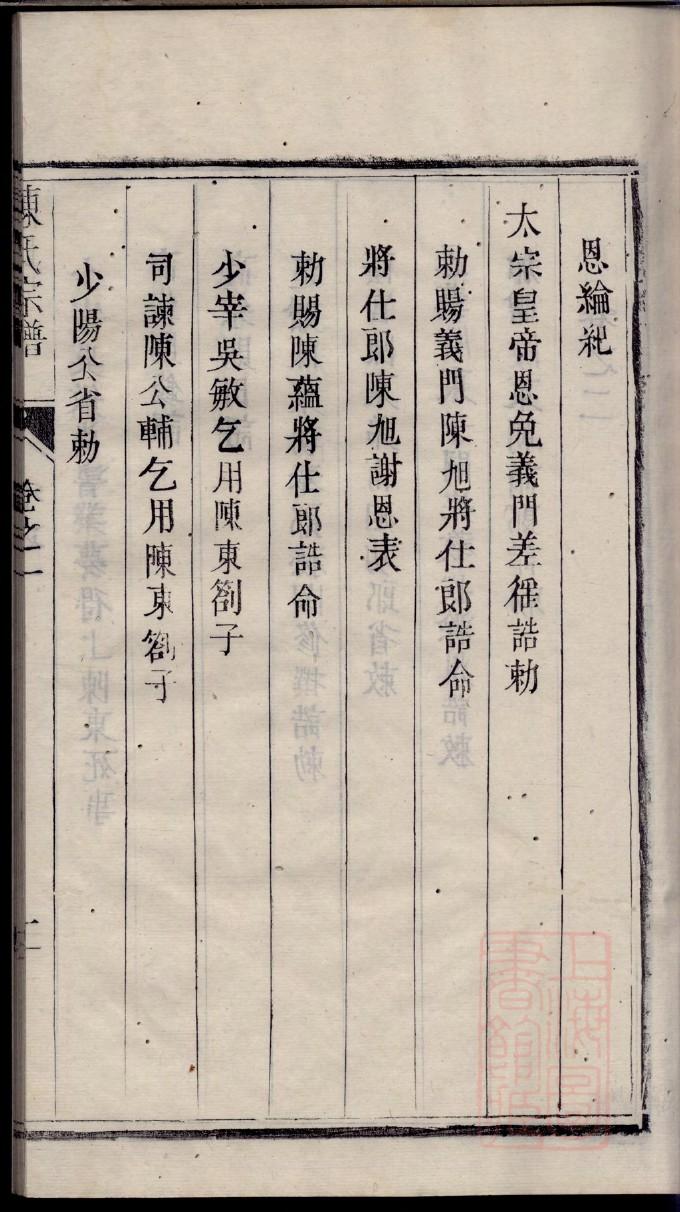 恩綸紀
太宗皇帝恩免義門差徭誥勅
勅賜義門陳旭將仕郎誥命
將仕郎陳旭謝恩表
勅賜陳蘊將仕郎誥命
少宰吳敏乞用陳東劄子
司諫陳公輔乞用陳東劄子
少陽公省勅
陳氏宗譜
卷之一
上海圖書館藏